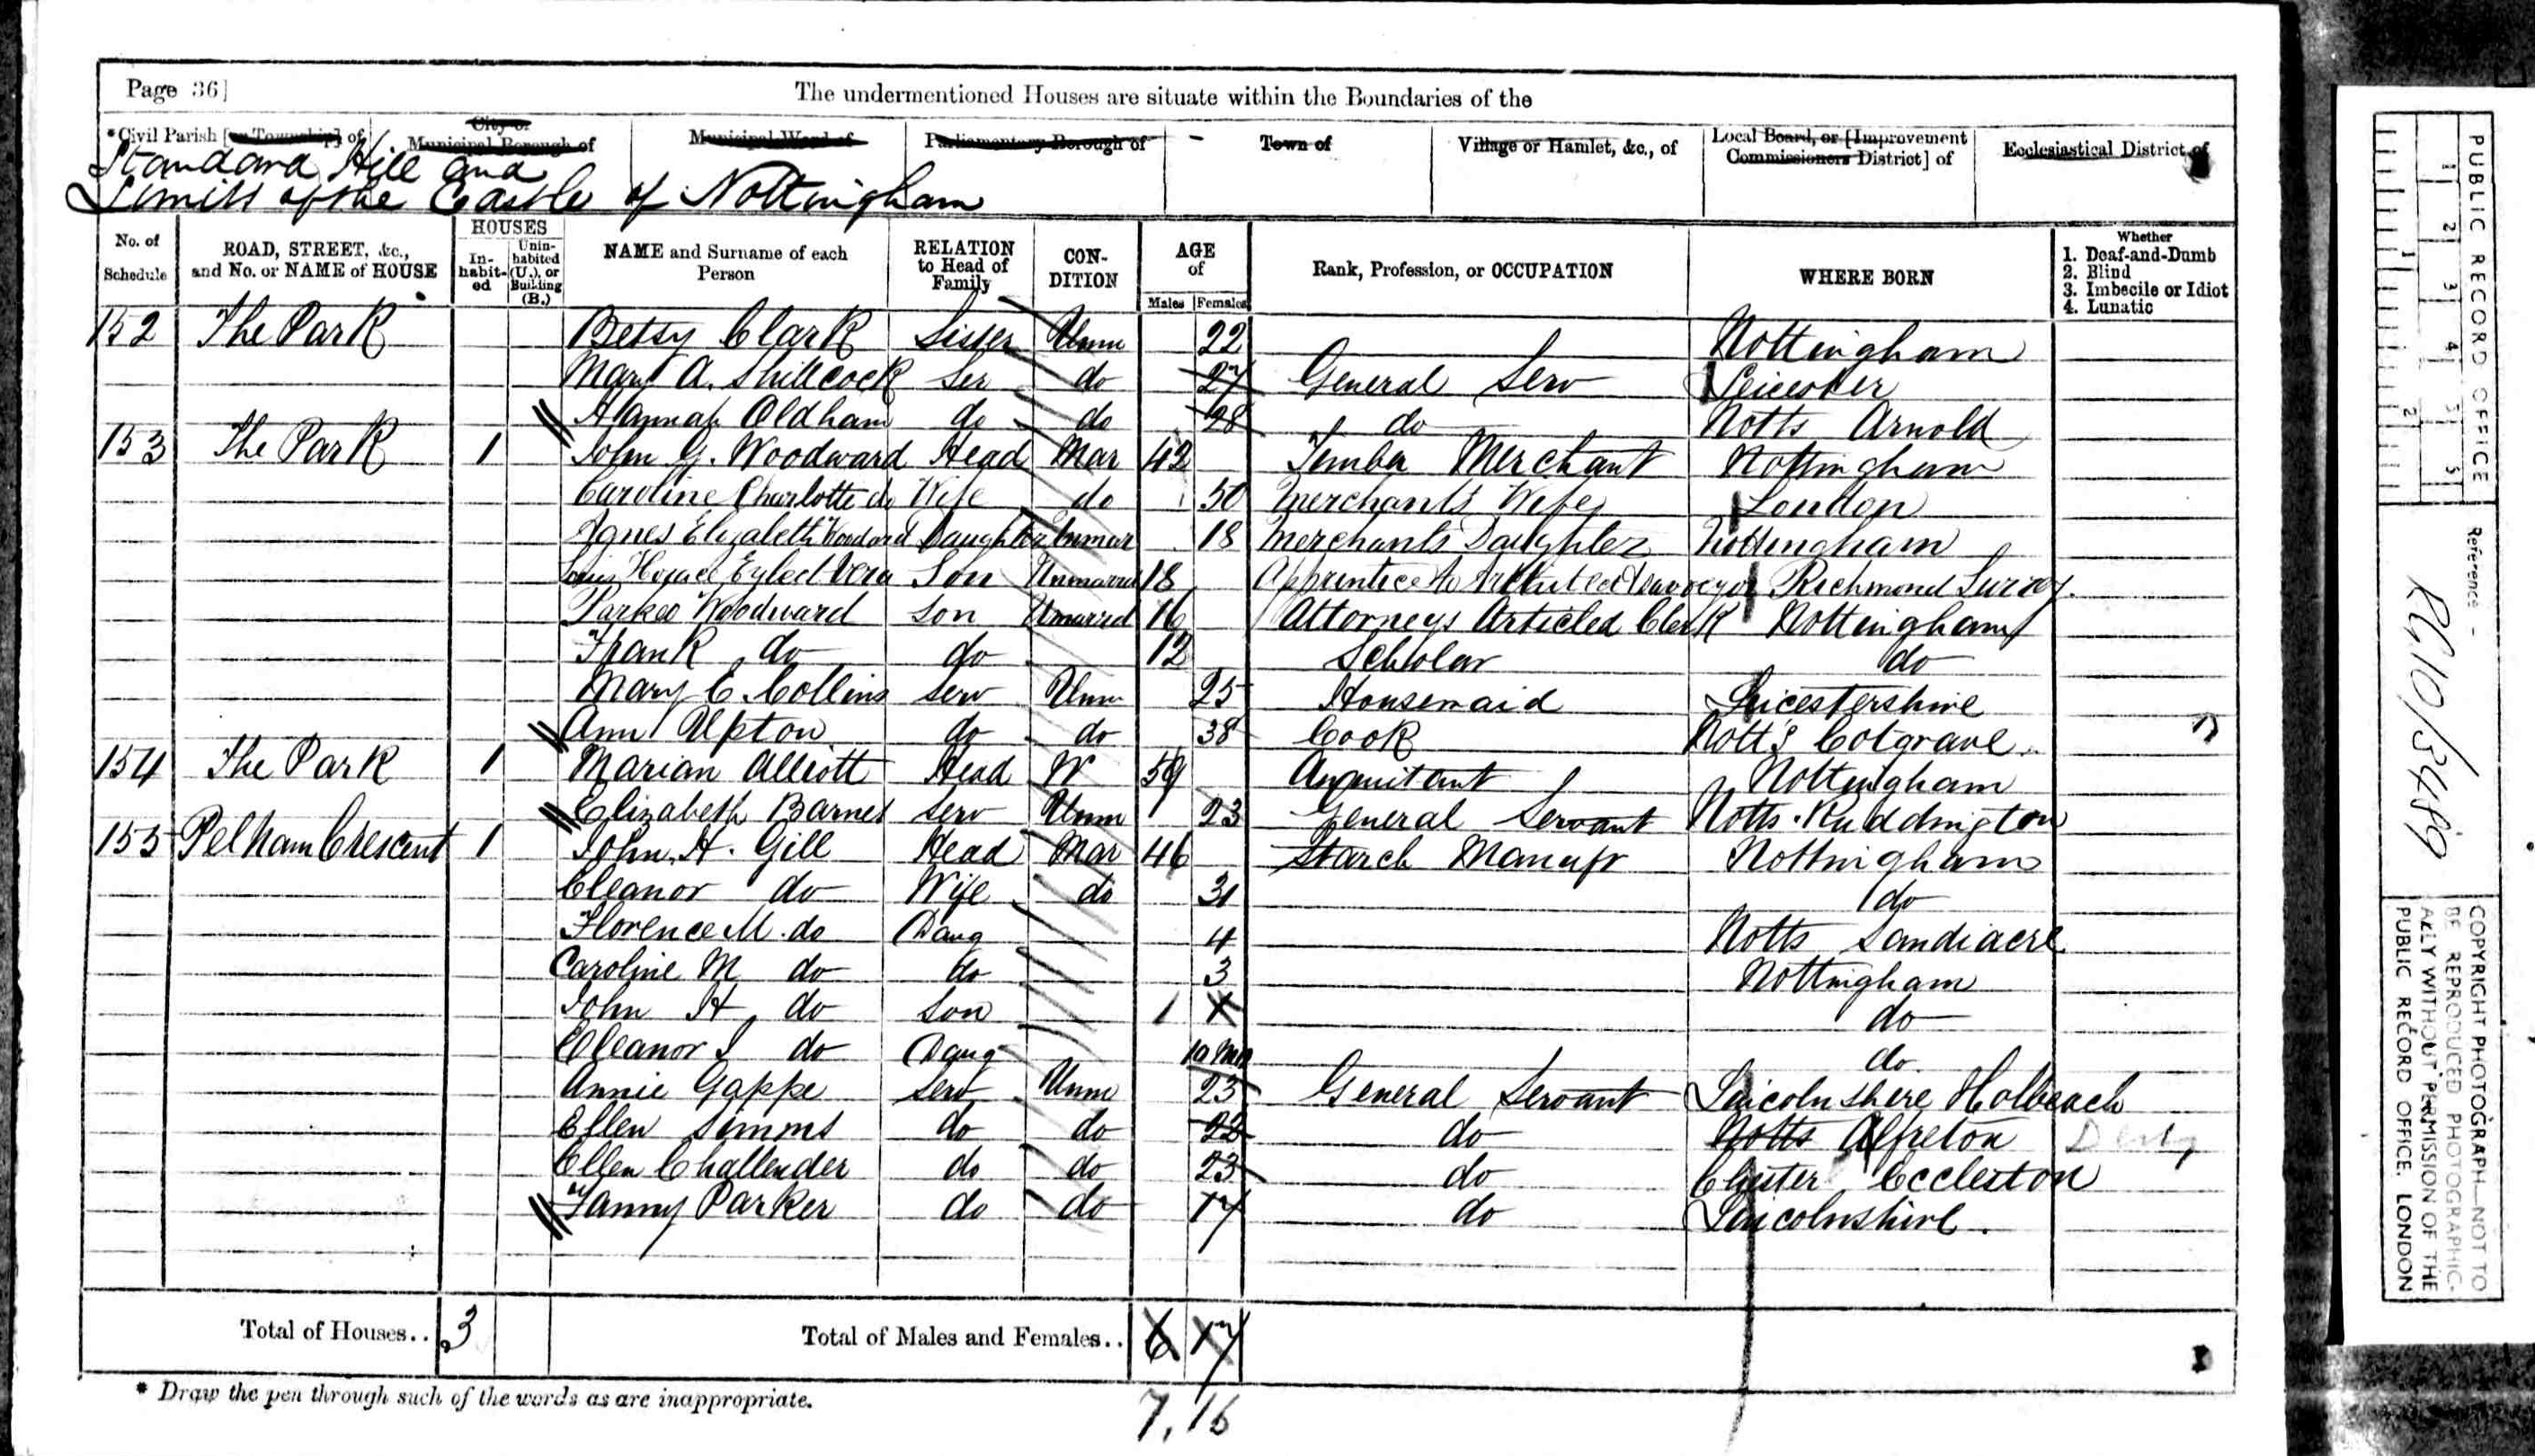 Page 36]
The undermentioned Houses are situate within the Boundaries of the
*Civil Parish [or Township] of
City or Municipal Borough of
Municipal Ward of
Parliamentary Borough of
Town of
Village or Hamlet, &c., of
Local Board, or [Improvement Commissioners District] of
Ecclesiastical District of
Standard Hill and
Limits of the Castle of Nottingham
No. of Schedule
ROAD, STREET, &c., and No. or NAME of HOUSE
HOUSES
In-habit-ed
Unin-habited (U.), or Building (B.)
NAME and Surname of each Person
RELATION to Head of Family
CON-DITION
AGE of
Males Females
Rank, Profession, or OCCUPATION
WHERE BORN
Whether
1. Deaf-and-Dumb
2. Blind
3. Imbecile or Idiot
4. Lunatic
152 The Park Betsy Clark Sister Unm 22 Nottingham
Mary A. Shillcock Ser do 27 General Serv Leicester
Hannah Oldham do do 28 do Notts Arnold
153 The Park 1 John G. Woodward Head Mar 42 Timber Merchant Nottingham
Caroline Charlotte do Wife do 50 Merchants Wife London
Agnes Elizabeth Woodward Daughter Unmar 18 Merchants Daughter Nottingham
Vera Son Unmarried 18 Apprentice to Architect & Surveyor Richmond Surrey.
Parkes Woodward Son Unmarrd 16 Attorneys Articled Clerk Nottingham
Frank do do 12 Scholar do
Mary E. Collins Serv Unm 25 Housemaid Leicestershire
Ann Upton do do 38 Cook Notts Cotgrave
154 The Park 1 Marian Alliott Head W 59 Annuitant Nottingham
Elizabeth Barnes Serv Unm 23 General Servant Notts Ruddington
155 Pelham Crescent 1 John H. Gill Head Mar 46 Starch Manufr Nottingham
Eleanor do Wife do 31 do
Florence M. do Daug 4 Notts Sandiacre
Caroline M do do 3 Nottingham
John H do Son 1 do
Eleanor do Daug do
Annie Gappe Serv Unm 23 General Servant Lincolnshire Holbeach
Ellen Simms do do 22 do Notts Alfreton Derby
Ellen Challender do do 23 do Chester Eccleston
Fanny Parker do do 17 do Lincolnshire.
Total of Houses.. 3
Total of Males and Females.. 6 17
7. 16
* Draw the pen through such of the words as are inappropriate.
PUBLIC RECORD OFFICE
1 2 3 4 5 6
1 2
Reference -
RG 10/3489
COPYRIGHT PHOTOGRAPH—NOT TO
BE REPRODUCED PHOTOGRAPHIC-
ALLY WITHOUT PERMISSION OF THE
PUBLIC RECORD OFFICE, LONDON